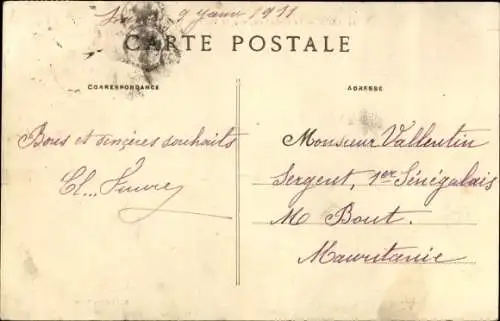 9 Janv 1911
CARTE POSTALE
CORRESPONDANCE
ADRESSE
Bons et sincères souhaits
Monsieur Vallentin
Sergent, 1er Sénégalais
M Bout.
Mauritanie